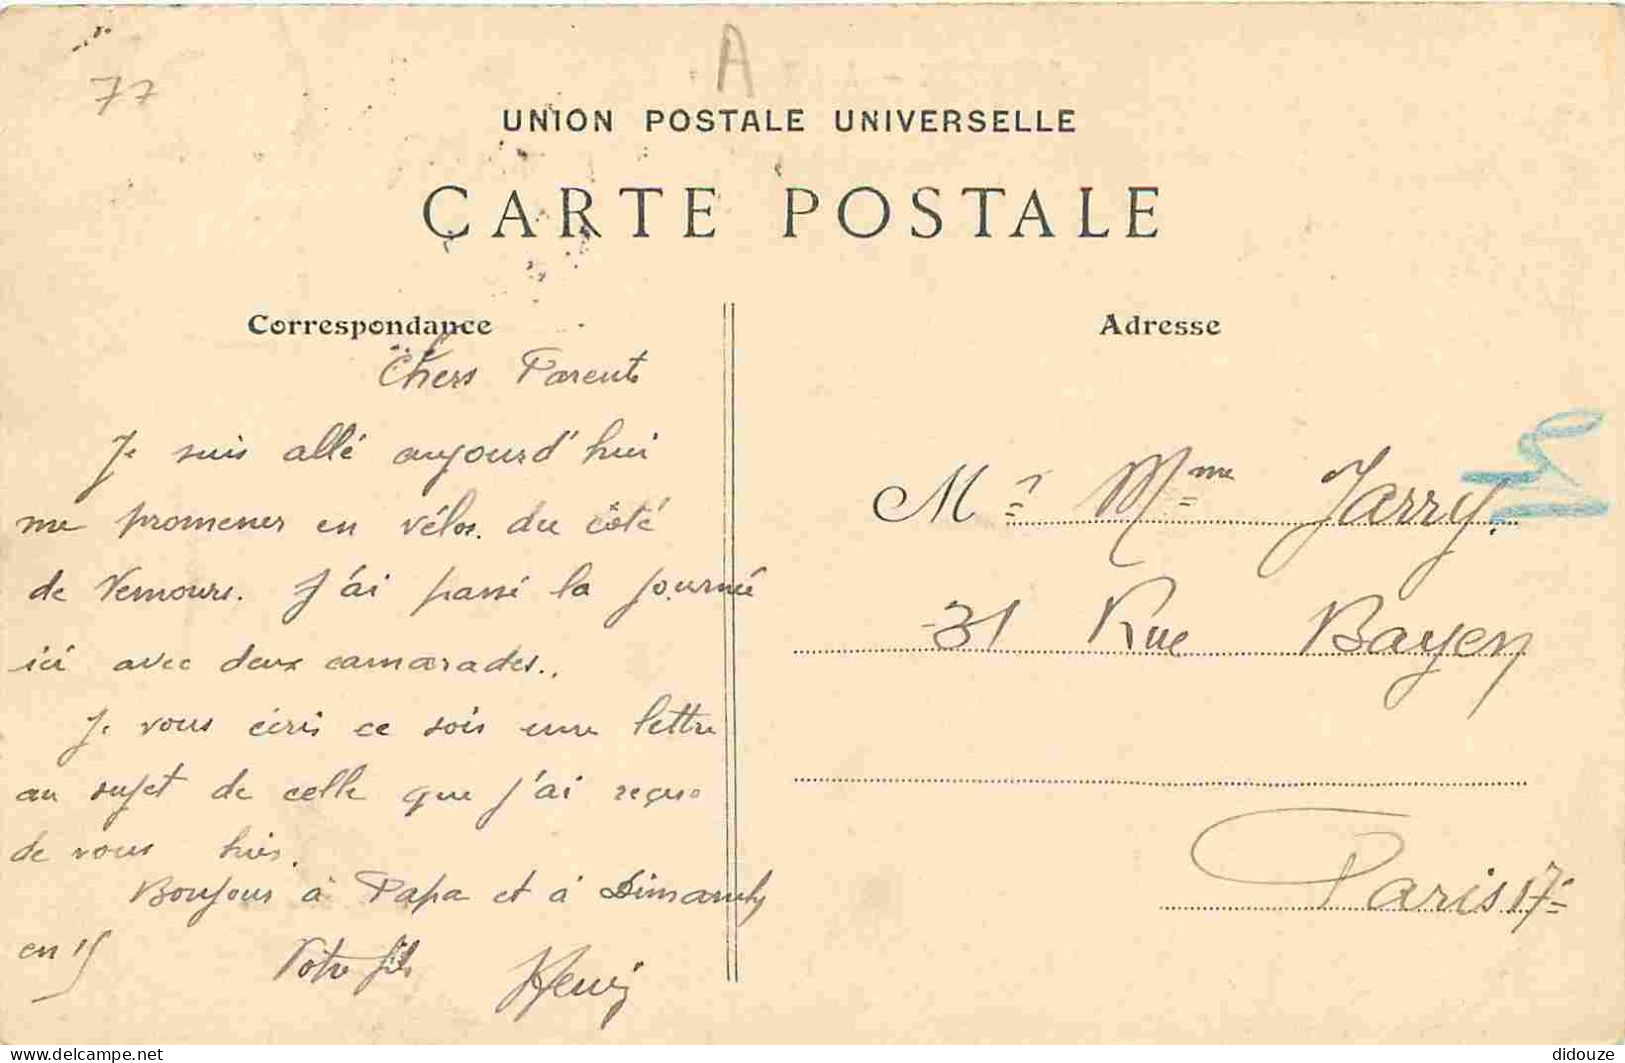 77
A
UNION POSTALE UNIVERSELLE
CARTE POSTALE
Correspondance
Chers Parents
Je suis allé aujourd'hui
me promener en vélos. du côté
de Nemours. J'ai passé la journée
ici avec deux camarades..
Je vous écris ce soir une lettre
au sujet de celle que j'ai reçue
de vous hier.
Bonjour à Papa et à Dimanche
en 15
Votre fils Henri
Adresse
Mr Mme Jarry.
31 Rue Bayen
Paris 17e
www.delcampe.net
didouze